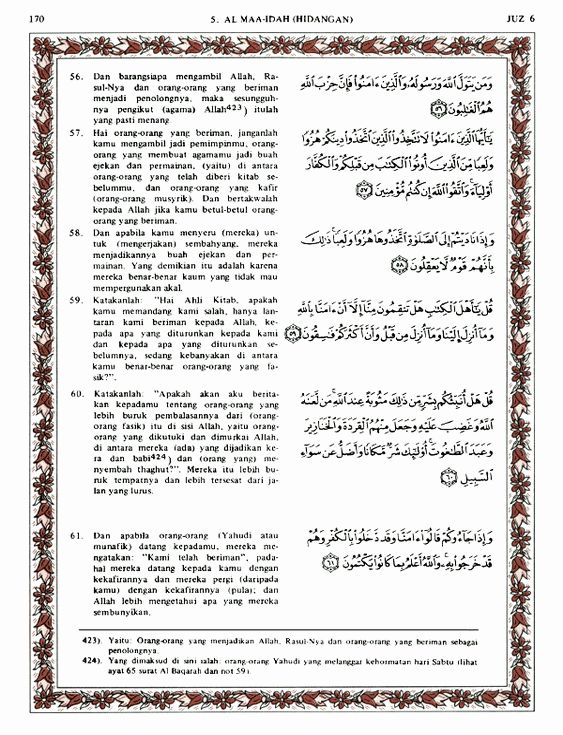 170 5. AL MAA-IDAH (HIDANGAN) JUZ 6
56. Dan barangsiapa mengambil Allah, Ra-
sul-Nya dan orang-orang yang beriman
menjadi penolongnya, maka sesungguh-
nya pengikut (agama) Allah423) itulah
yang pasti menang.
وَمَن يَتَوَلَّ ٱللَّهَ وَرَسُولَهُۥ وَٱلَّذِينَ ءَامَنُوا۟ فَإِنَّ حِزْبَ ٱللَّهِ
هُمُ ٱلْغَٰلِبُونَ ٥٦
57. Hai orang-orang yang beriman, janganlah
kamu mengambil jadi pemimpinmu, orang-
orang yang membuat agamamu jadi buah
ejekan dan permainan, (yaitu) di antara
orang-orang yang telah diberi kitab se-
belummu, dan orang-orang yang kafir
(orang-orang musyrik). Dan bertakwalah
kepada Allah jika kamu betul-betul orang-
orang yang beriman.
يَٰٓأَيُّهَا ٱلَّذِينَ ءَامَنُوا۟ لَا تَتَّخِذُوا۟ ٱلَّذِينَ ٱتَّخَذُوا۟ دِينَكُمْ هُزُوًا
وَلَعِبًا مِّنَ ٱلَّذِينَ أُوتُوا۟ ٱلْكِتَٰبَ مِن قَبْلِكُمْ وَٱلْكُفَّارَ
أَوْلِيَآءَ وَٱتَّقُوا۟ ٱللَّهَ إِن كُنتُم مُّؤْمِنِينَ ٥٧
58. Dan apabila kamu menyeru (mereka) un-
tuk (mengerjakan) sembahyang, mereka
menjadikannya buah ejekan dan per-
mainan. Yang demikian itu adalah karena
mereka benar-benar kaum yang tidak mau
mempergunakan akal.
وَإِذَا نَادَيْتُمْ إِلَى ٱلصَّلَوٰةِ ٱتَّخَذُوهَا هُزُوًا وَلَعِبًا ذَٰلِكَ
بِأَنَّهُمْ قَوْمٌ لَّا يَعْقِلُونَ ٥٨
59. Katakanlah: "Hai Ahli Kitab, apakah
kamu memandang kami salah, hanya lan-
taran kami beriman kepada Allah, ke-
pada apa yang diturunkan kepada kami
dan kepada apa yang diturunkan se-
belumnya, sedang kebanyakan di antara
kamu benar-benar orang-orang yang fa-
sik?".
قُلْ يَٰٓأَهْلَ ٱلْكِتَٰبِ هَلْ تَنقِمُونَ مِنَّآ إِلَّآ أَنْ ءَامَنَّا بِٱللَّهِ
وَمَآ أُنزِلَ إِلَيْنَا وَمَآ أُنزِلَ مِن قَبْلُ وَأَنَّ أَكْثَرَكُمْ فَٰسِقُونَ ٥٩
60. Katakanlah: "Apakah akan aku berita-
kan kepadamu tentang orang-orang yang
lebih buruk pembalasannya dari (orang-
orang fasik) itu di sisi Allah, yaitu orang-
orang yang dikutuki dan dimurkai Allah,
di antara mereka (ada) yang dijadikan ke-
ra dan babi424) dan (orang yang) me-
nyembah thaghut?". Mereka itu lebih bu-
ruk tempatnya dan lebih tersesat dari ja-
lan yang lurus.
قُلْ هَلْ أُنَبِّئُكُم بِشَرٍّ مِّن ذَٰلِكَ مَثُوبَةً عِندَ ٱللَّهِ مَن لَّعَنَهُ
ٱللَّهُ وَغَضِبَ عَلَيْهِ وَجَعَلَ مِنْهُمُ ٱلْقِرَدَةَ وَٱلْخَنَازِيرَ
وَعَبَدَ ٱلطَّٰغُوتَ أُو۟لَٰٓئِكَ شَرٌّ مَّكَانًا وَأَضَلُّ عَن سَوَآءِ
ٱلسَّبِيلِ ٦٠
61. Dan apabila orang-orang (Yahudi atau
munafik) datang kepadamu, mereka me-
ngatakan: "Kami telah beriman", pada-
hal mereka datang kepada kamu dengan
kekafirannya dan mereka pergi (daripada
kamu) dengan kekafirannya (pula); dan
Allah lebih mengetahui apa yang mereka
sembunyikan.
وَإِذَا جَآءُوكُمْ قَالُوٓا۟ ءَامَنَّا وَقَد دَّخَلُوا۟ بِٱلْكُفْرِ وَهُمْ
قَدْ خَرَجُوا۟ بِهِۦ وَٱللَّهُ أَعْلَمُ بِمَا كَانُوا۟ يَكْتُمُونَ ٦١
423). Yaitu: Orang-orang yang menjadikan Allah, Rasul-Nya dan orang-orang yang beriman sebagai
penolongnya.
424). Yang dimaksud di sini ialah: orang-orang Yahudi yang melanggar kehormatan hari Sabtu (lihat
ayat 65 surat Al Baqarah dan not 59).